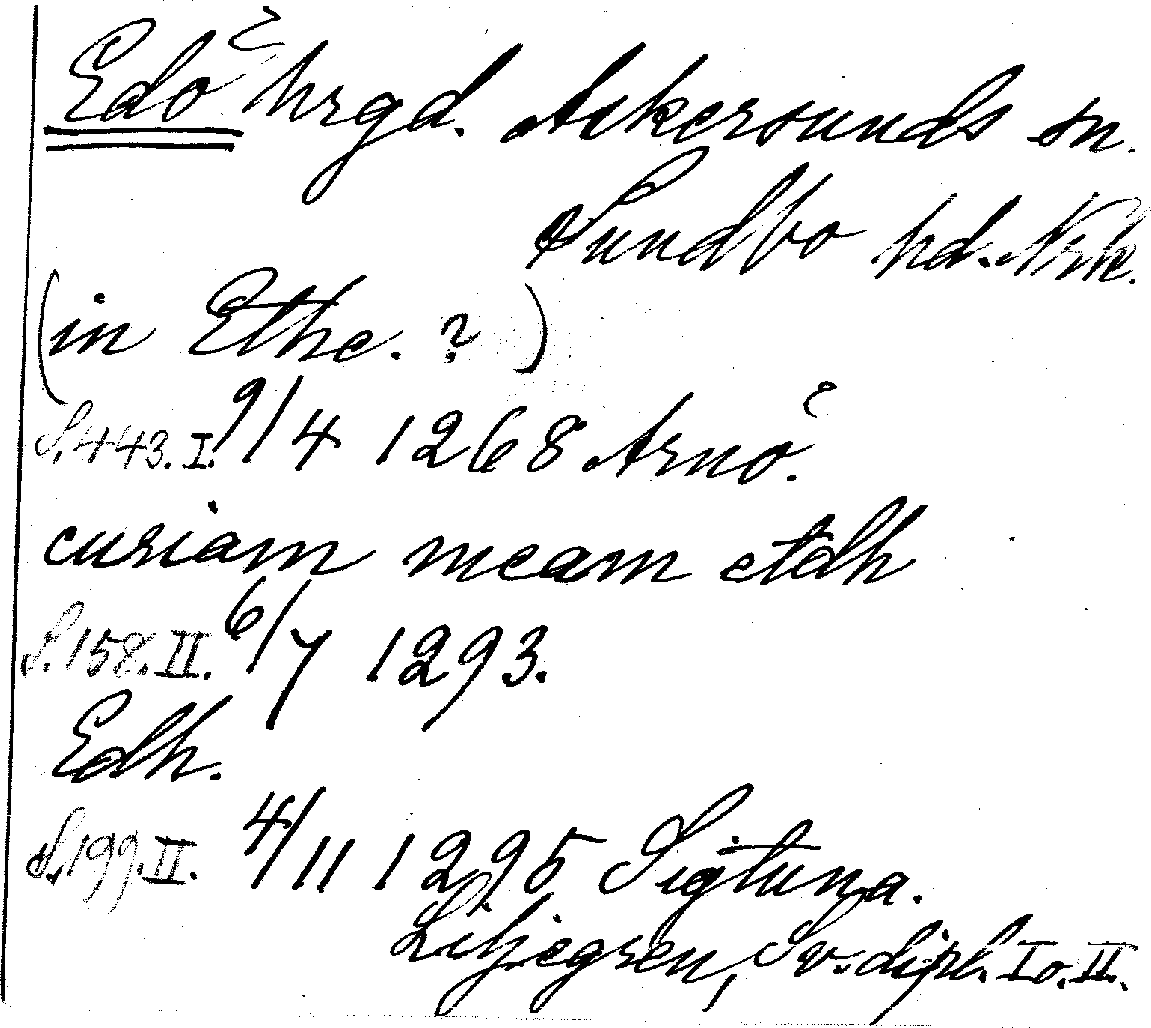 Edö hrgd. Askersunds sn.
Sundbo hd. Nrk.
(in Ethe. ?)
S. 443. I. 9/4 1268 Arnö.
curiam meam etdh
S. 158. II. 6/7 1293.
Edh.
S. 199. II. 4/11 1295 Sigtuna.
Liljegren, Sv. dipl. I o. II.